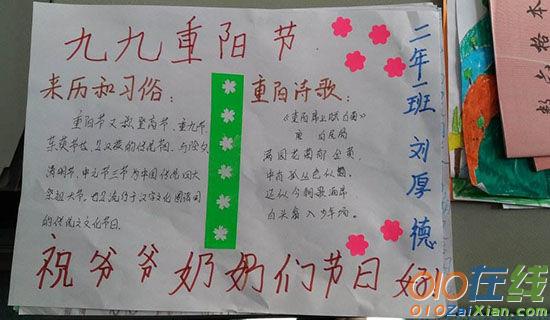 九九重阳节
来历和习俗：
重阳节又敬登高节、重九节、
茱萸节等，是汉族的传统节日，与除夕、
清明节、中元节三节为中国传统四大
祭祖大节。也是流行于汉字文化圈诸国
的传统文化节日。
重阳诗歌：
《重阳席上赋白菊》
唐 白居易
满园花菊郁金黄，
中有孤丛色似霜。
还似今朝歌酒席，
白头翁入少年场。
二年一班 刘厚德
祝爷爷奶奶们节日好
数学格本
010在线
010ZaiXian.com